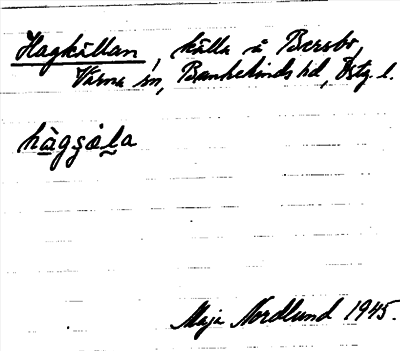 Hagkällan, källa å Bersbo,
Värna sn, Bankekinds hd, Östg. l.
hàgsṡ̌åla
Maja Nordlund 1945.